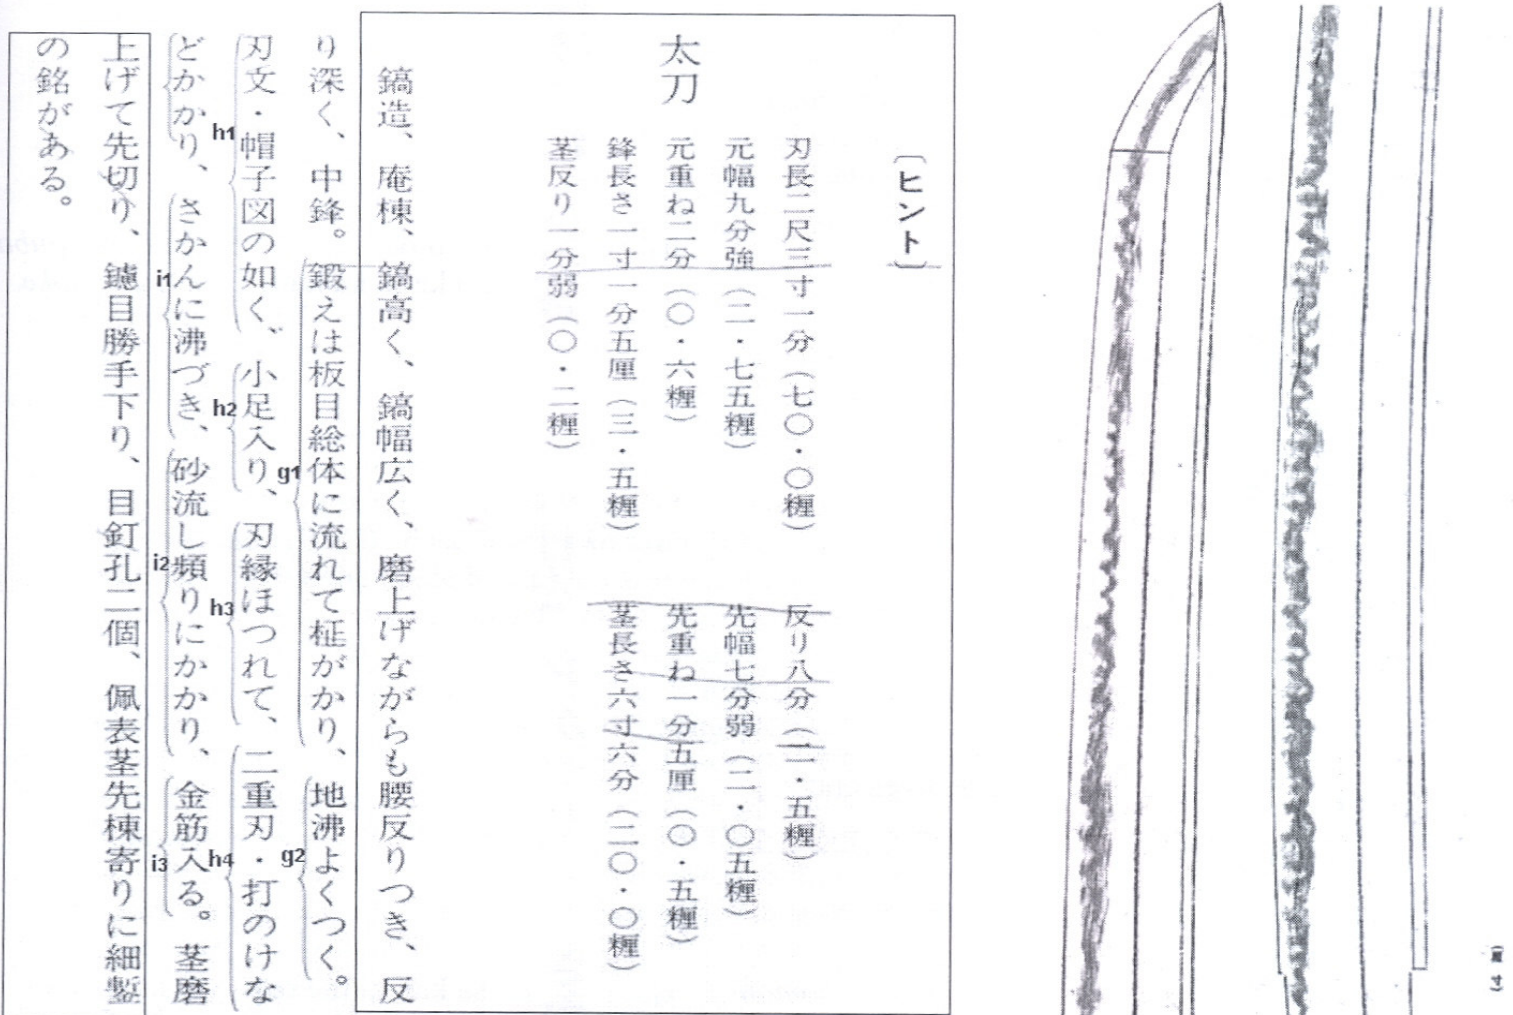 〔ヒント〕
太刀
刃長二尺三寸一分（七〇・〇糎）
反り八分（二・五糎）
元幅九分強（二・七五糎）
先幅七分弱（二・〇五糎）
元重ね二分（〇・六糎）
先重ね一分五厘（〇・五糎）
鋒長さ一寸一分五厘（三・五糎）
茎長さ六寸六分（二〇・〇糎）
茎反り一分弱（〇・二糎）
鎬造、庵棟、鎬高く、鎬幅広く、磨上げながらも腰反りつき、反
り深く、中鋒。鍛えは板目総体に流れて柾がかり、地沸よくつく。
g1
g2
刃文・帽子図の如く、小足入り、刃縁ほつれて、二重刃・打のけな
h1
h2
h3
h4
どかかり、さかんに沸づき、砂流し頻りにかかり、金筋入る。茎磨
i1
i2
i3
上げて先切り、鑢目勝手下り、目釘孔二個、佩表茎先棟寄りに細鏨
の銘がある。